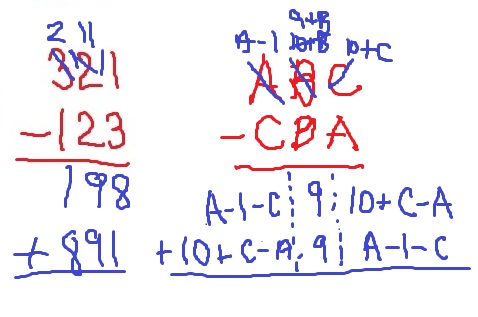 2 11
321
-123
198
+891
9+B
A-1 10+B 10+C
ABC
-CBA
A-1-C 9 10+C-A
+10+C-A 9 A-1-C